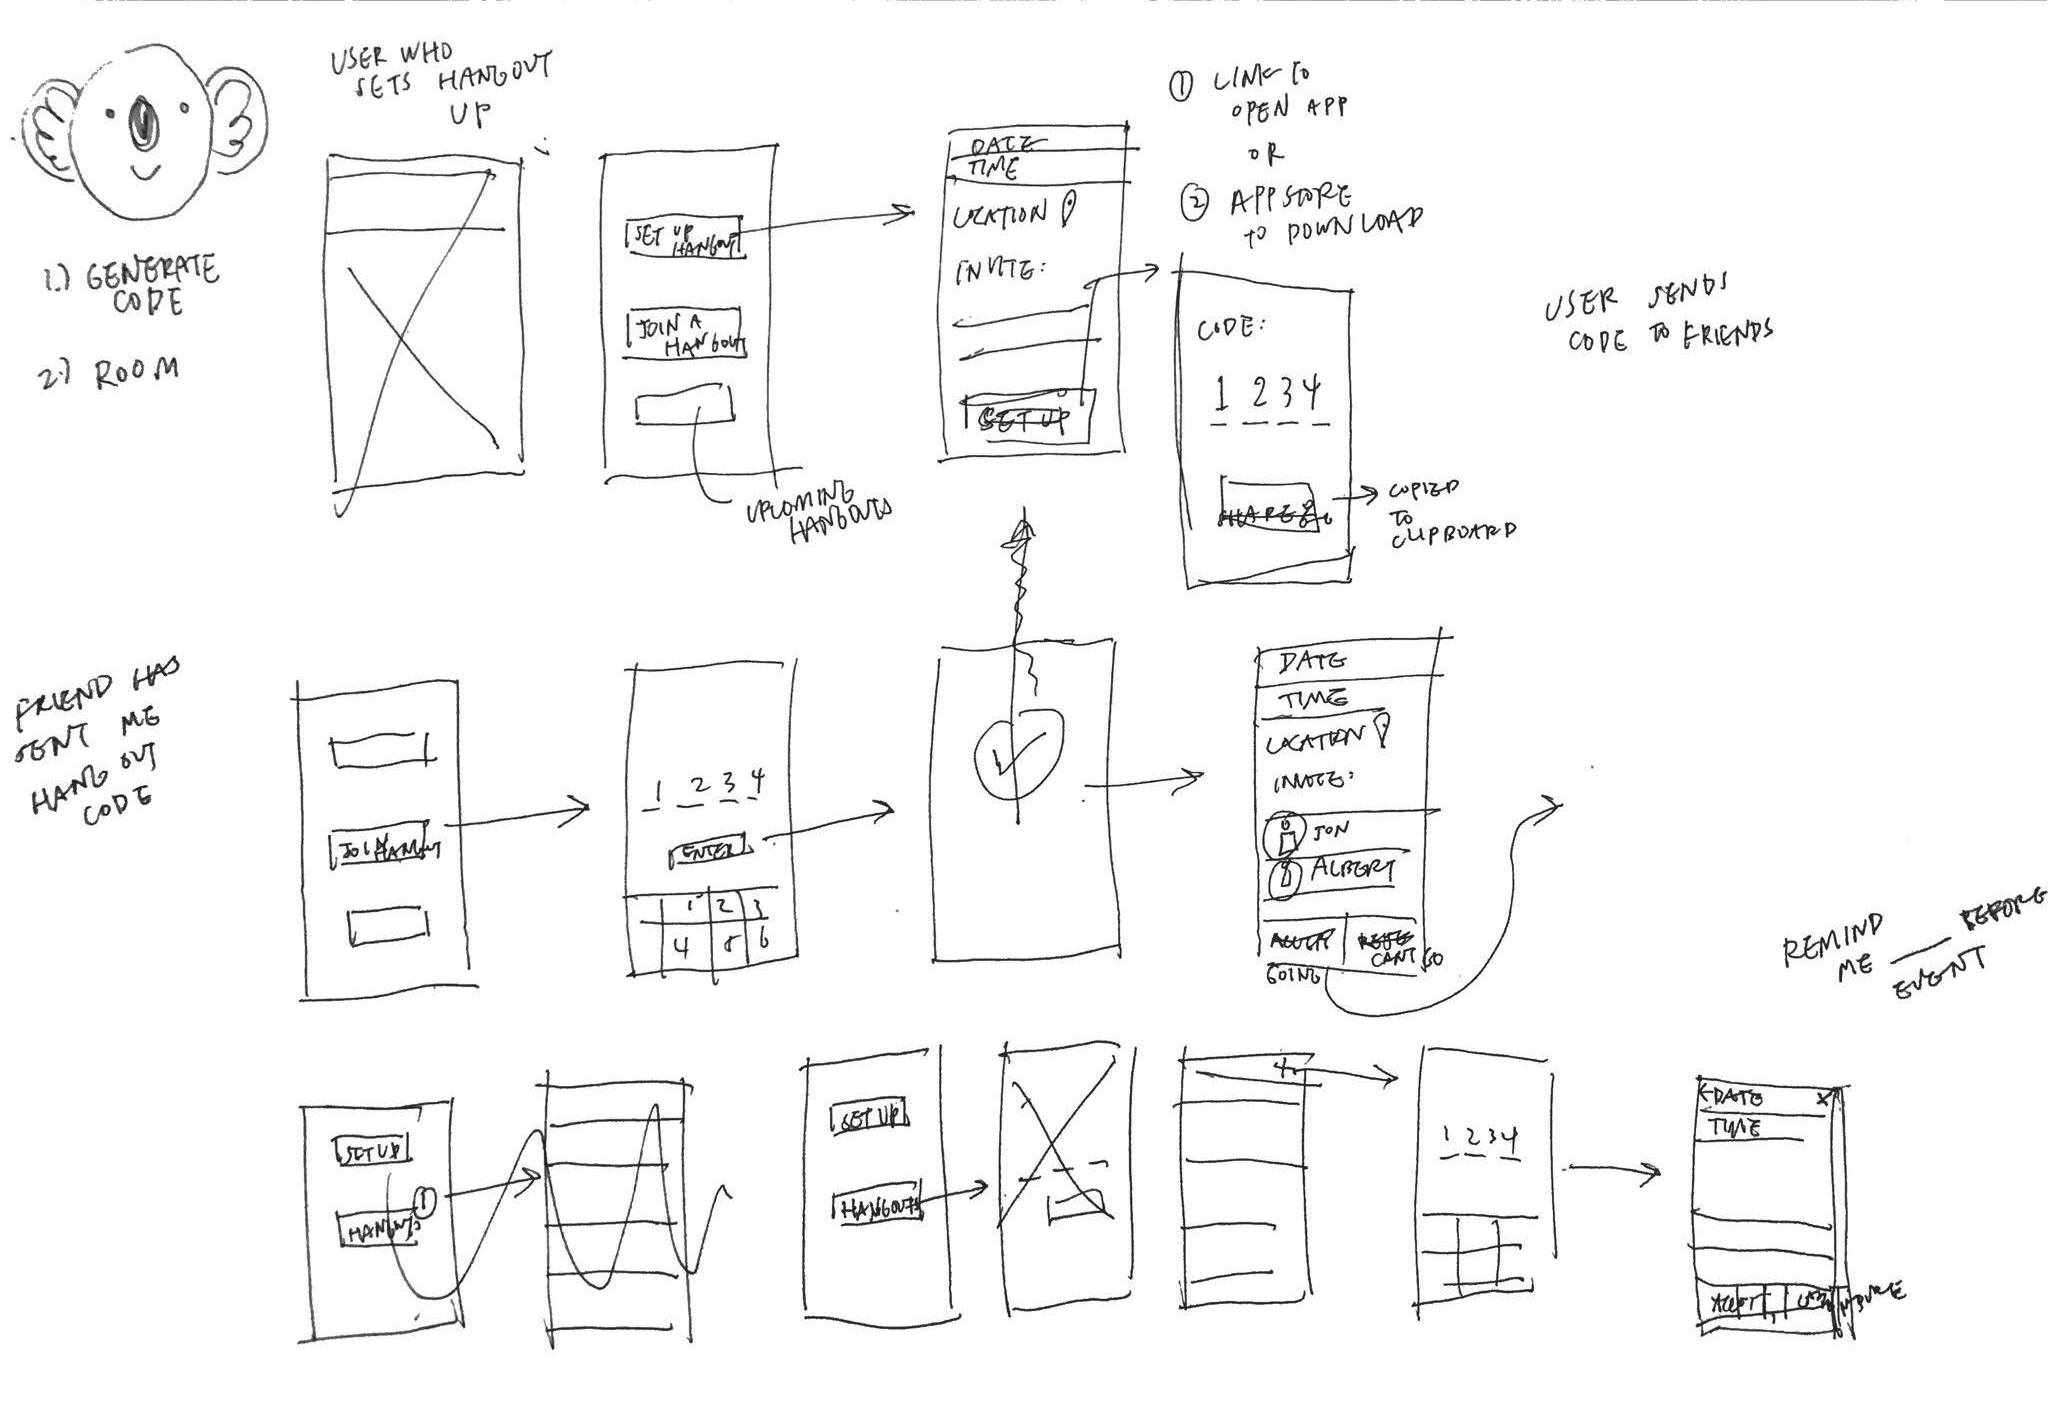 USER WHO
SETS HANGOUT
UP
1.) GENERATE
CODE
2.) ROOM
SET UP
HANGOUT
JOIN A
HANGOUT
UPCOMING
HANGOUTS
DATE
TIME
LOCATION
INVITE:
SET UP
① LINK TO
OPEN APP
OR
② APPSTORE
TO DOWNLOAD
CODE:
1 2 3 4
SHARE
COPIED
TO
CLIPBOARD
USER SENDS
CODE TO FRIENDS
FRIEND HAS
SENT ME
HANG OUT
CODE
JOIN HANGOUT
1 2 3 4
ENTER
1 2 3
4 5 6
DATE
TIME
LOCATION
INVITE:
JON
ALBERT
ACCEPT
CANT GO
GOING
REMIND
ME ___ BEFORE
EVENT
SET UP
1
HANGOUTS
SET UP
HANGOUTS
1 2 3 4
DATE X
TIME
ACCEPT